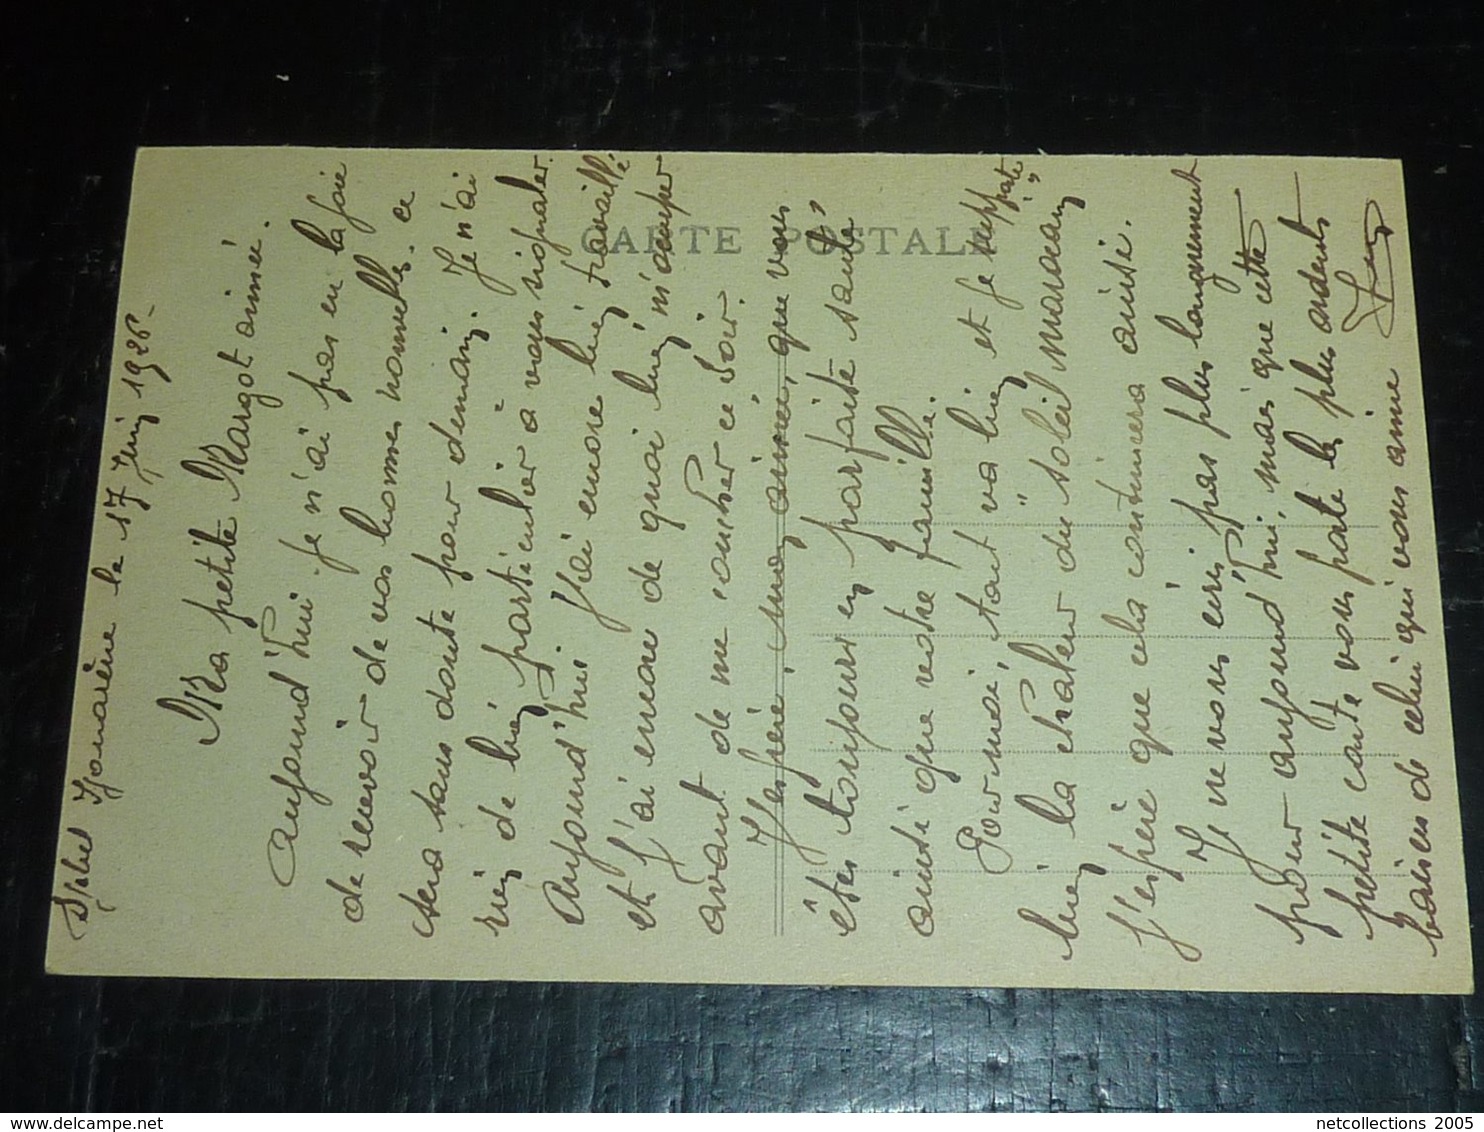 le 17 Juin 1926-
Ma petite Margot aimée.
Aujourd'hui je n'ai pas eu la joie
de recevoir de vos bonnes nouvelles. ce
sera sans doute pour demain. Je n'ai
rien de bien particulier a vous signaler.
Aujourd'hui j'ai encore bien travaillé
et j'ai encore de quoi bien m'occuper
avant de me coucher ce soir.
J'espère, mon aimée, que vous
êtes toujours en parfaite santé,
ainsi que votre famille.
Pour moi, tout va bien et je supporte
bien la chaleur du "soleil marocain"
j'espère que cela continuera ainsi.
Je ne vous écris pas plus longuement
pour aujourd'hui, mais que cette
petite carte vous porte les plus ardents
baisers de celui qui vous aime
CARTE POSTALE
delcampe.net
netcollections 2005